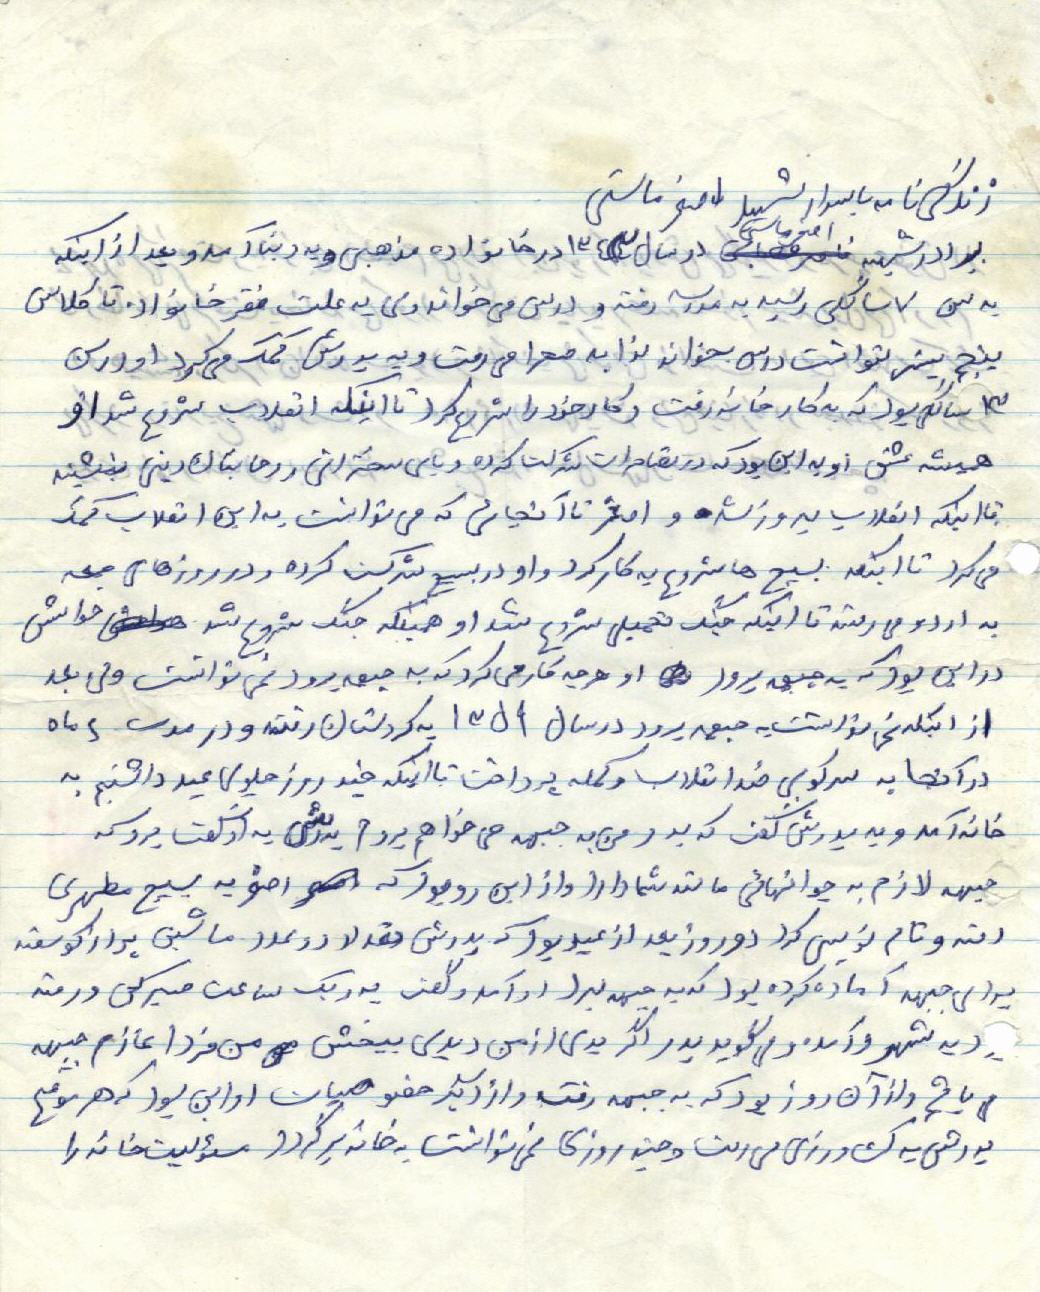 زندگی نامه پاسدار شهید اصغر ماستی
برادر شهید اصغر ماستی در سال ۱۳۴۳ در خانواده مذهبی به دنیا آمد و بعد از اینکه
به سن ۷ سالگی رسید به مدرسه رفته و درس می خواند ولی به علت فقر خانواده تا کلاس
پنج بیشتر نتوانست درس بخواند لذا به صحرا می رفت و به پدرش کمک می کرد او در سن
۱۳ سالگی بود که به کار خانه رفت و کار خود را شروع کرد تا اینکه انقلاب شروع شد او
همیشه عشق او به این بود که در تظاهرات شرکت کرده و پای سخنرانی روحانیان دینی بنشیند
تا اینکه انقلاب پیروز شد و اصغر تا آنجائی که می توانست به این انقلاب کمک
می کرد تا اینکه بسیج ها شروع به کار کرد و او در بسیج شرکت کرده و در روزهای جمعه
به اردو می رفته تا اینکه جنگ تحمیلی شروع شد او همینکه جنگ شروع شد خواهش
در این بود که به جبهه برود او هر چه کار می کرد که به جبهه برود نمی توانست ولی بعد
از اینکه نمی توانست به جبهه برود در سال ۱۳۵۹ به کردستان رفته و در مدت ۶ ماه
در آنجا به سرکوبی ضد انقلاب و کمله پرداخت تا اینکه چند روز جلوی عید داشتیم به
خانه آمد و به پدرش گفت که پدر من به جبهه می خواهم بروم پدرش به او گفت برو که
جبهه لازم به جوانهائی مانند شما دارد و از این رو بود که اصغر به بسیج مطهری
رفته و نام نویسی کرد دو روز بعد از عید بود که پدرش در عدد ماشین پر از گوسفند
برای جبهه آماده کرده بود که به جبهه ببرد او آمد و گفت پدر یک ساعت صبر کن و رفته
به شهر و آمده و می گوید پدر اگر بدی از من دیدی ببخش من فردا عازم جبهه
می باشم و از آن روز بود که به جبهه رفت و از دیگر خصوصیات او این بود که هر موقع
پدرش به کشاورزی می رفت و چند روزی نمی توانست به خانه برگردد مسئولیت خانه را